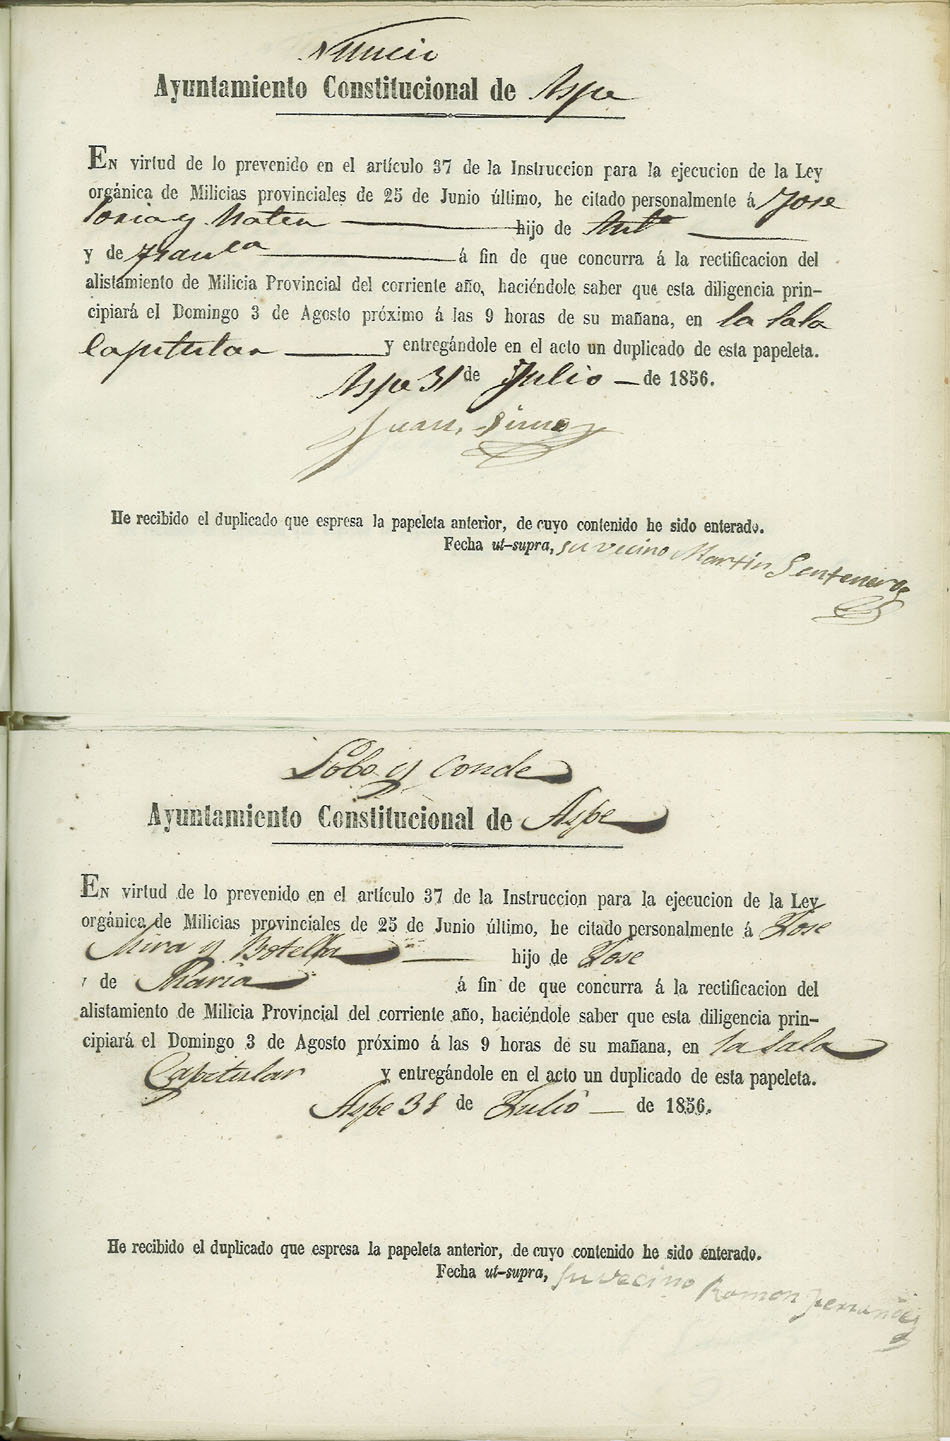 Nuncio
Ayuntamiento Constitucional de Aspe
EN virtud de lo prevenido en el artículo 37 de la Instruccion para la ejecucion de la Ley
orgánica de Milicias provinciales de 25 de Junio último, he citado personalmente á Jose
Soria y Mateu hijo de Ant.º
y de Fran.ca á fin de que concurra á la rectificacion del
alistamiento de Milicia Provincial del corriente año, haciéndole saber que esta diligencia prin-
cipiará el Domingo 3 de Agosto próximo á las 9 horas de su mañana, en la Sala
Capitular y entregándole en el acto un duplicado de esta papeleta.
Aspe 31 de Julio de 1856.
Juan
He recibido el duplicado que espresa la papeleta anterior, de cuyo contenido he sido enterado.
Fecha ut-supra, su vecino Martin Sentenero
Lobo y Conde
Ayuntamiento Constitucional de Aspe
EN virtud de lo prevenido en el artículo 37 de la Instruccion para la ejecucion de la Ley
orgánica de Milicias provinciales de 25 de Junio último, he citado personalmente á Jose
Mira y Botella hijo de Jose
y de Maria á fin de que concurra á la rectificacion del
alistamiento de Milicia Provincial del corriente año, haciéndole saber que esta diligencia prin-
cipiará el Domingo 3 de Agosto próximo á las 9 horas de su mañana, en la Sala
Capitular y entregándole en el acto un duplicado de esta papeleta.
Aspe 31 de Julio de 1856.
He recibido el duplicado que espresa la papeleta anterior, de cuyo contenido he sido enterado.
Fecha ut-supra, su vecino Ramon Fernandez